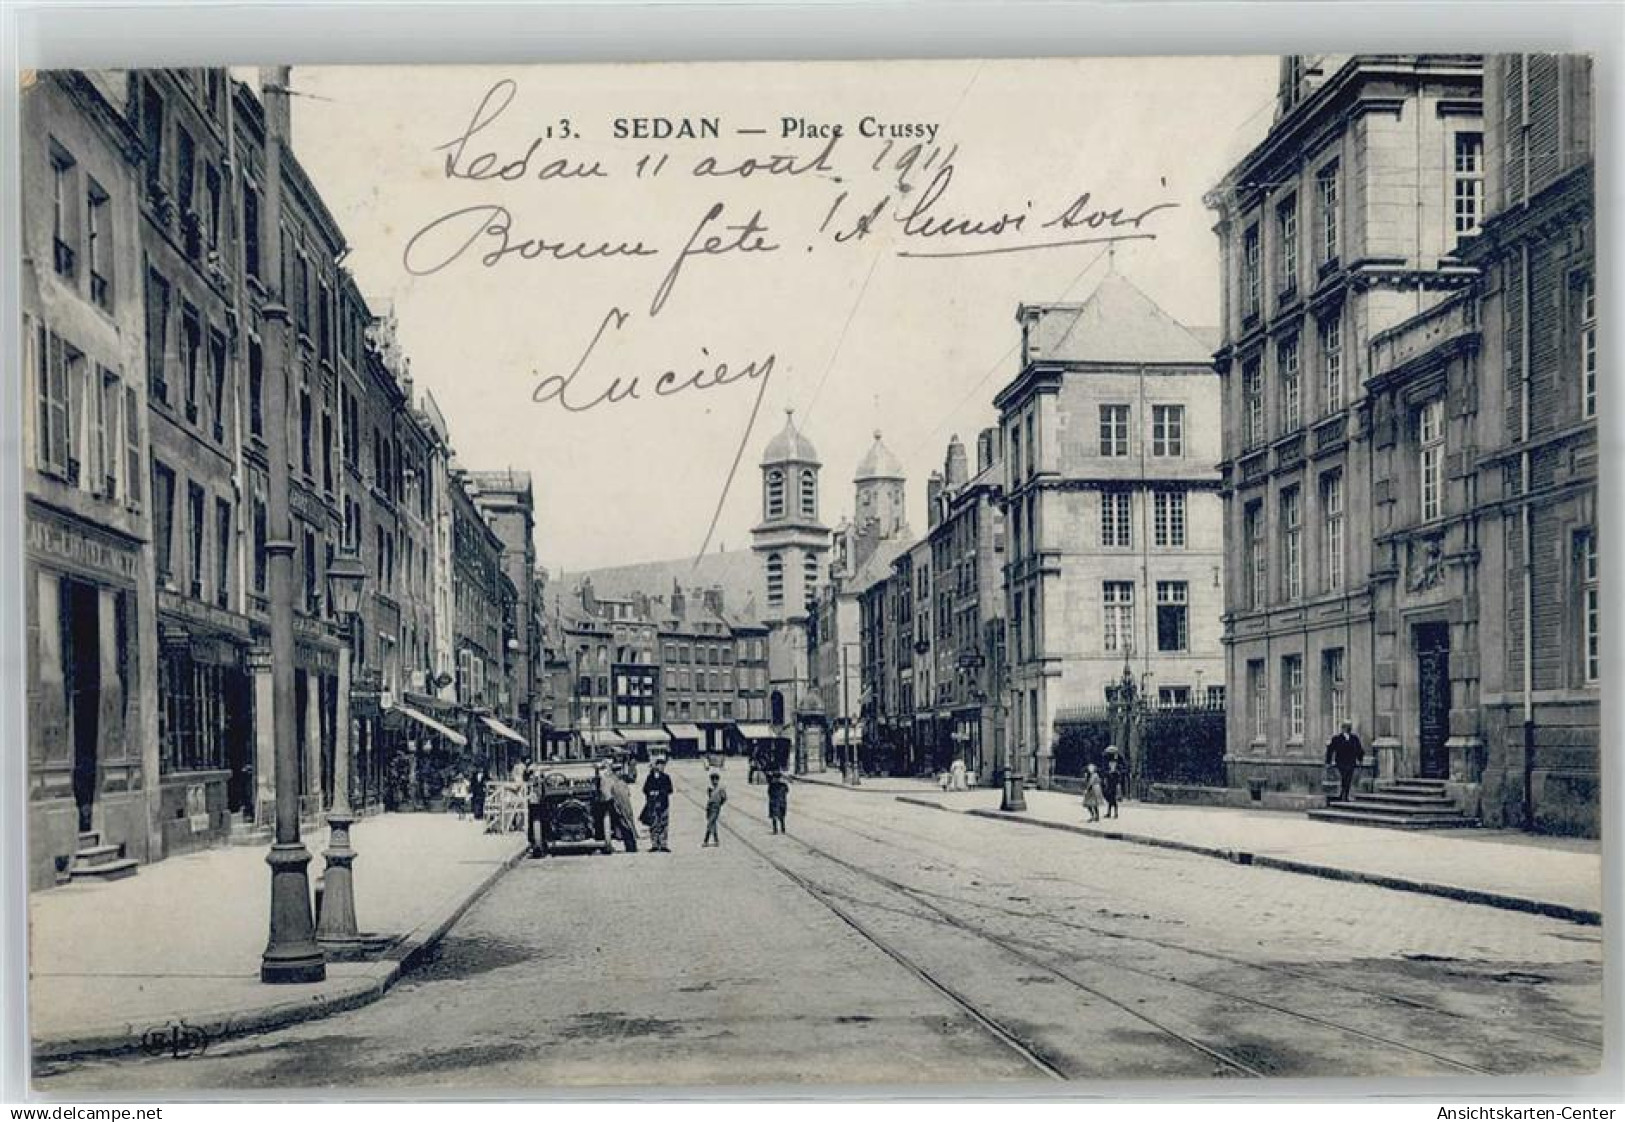 13. SEDAN — Place Crussy
Sedan 11 août 1911
Bonne fête ! A lundi soir
Lucien
ELD
su.delcampe.net
Ansichtskarten-Center